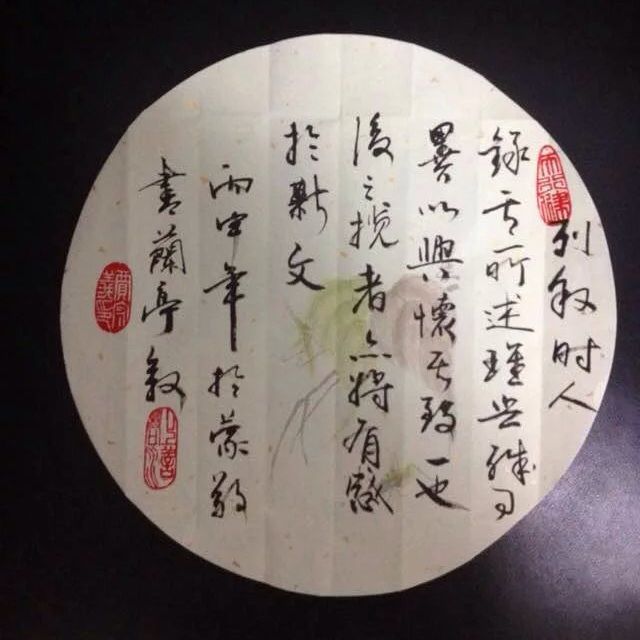 列叙时人
錄其所述雖世殊事
異以興懷其致一也
後之揽者亦將有感
於斯文
丙申年於蒙
書蘭亭叙